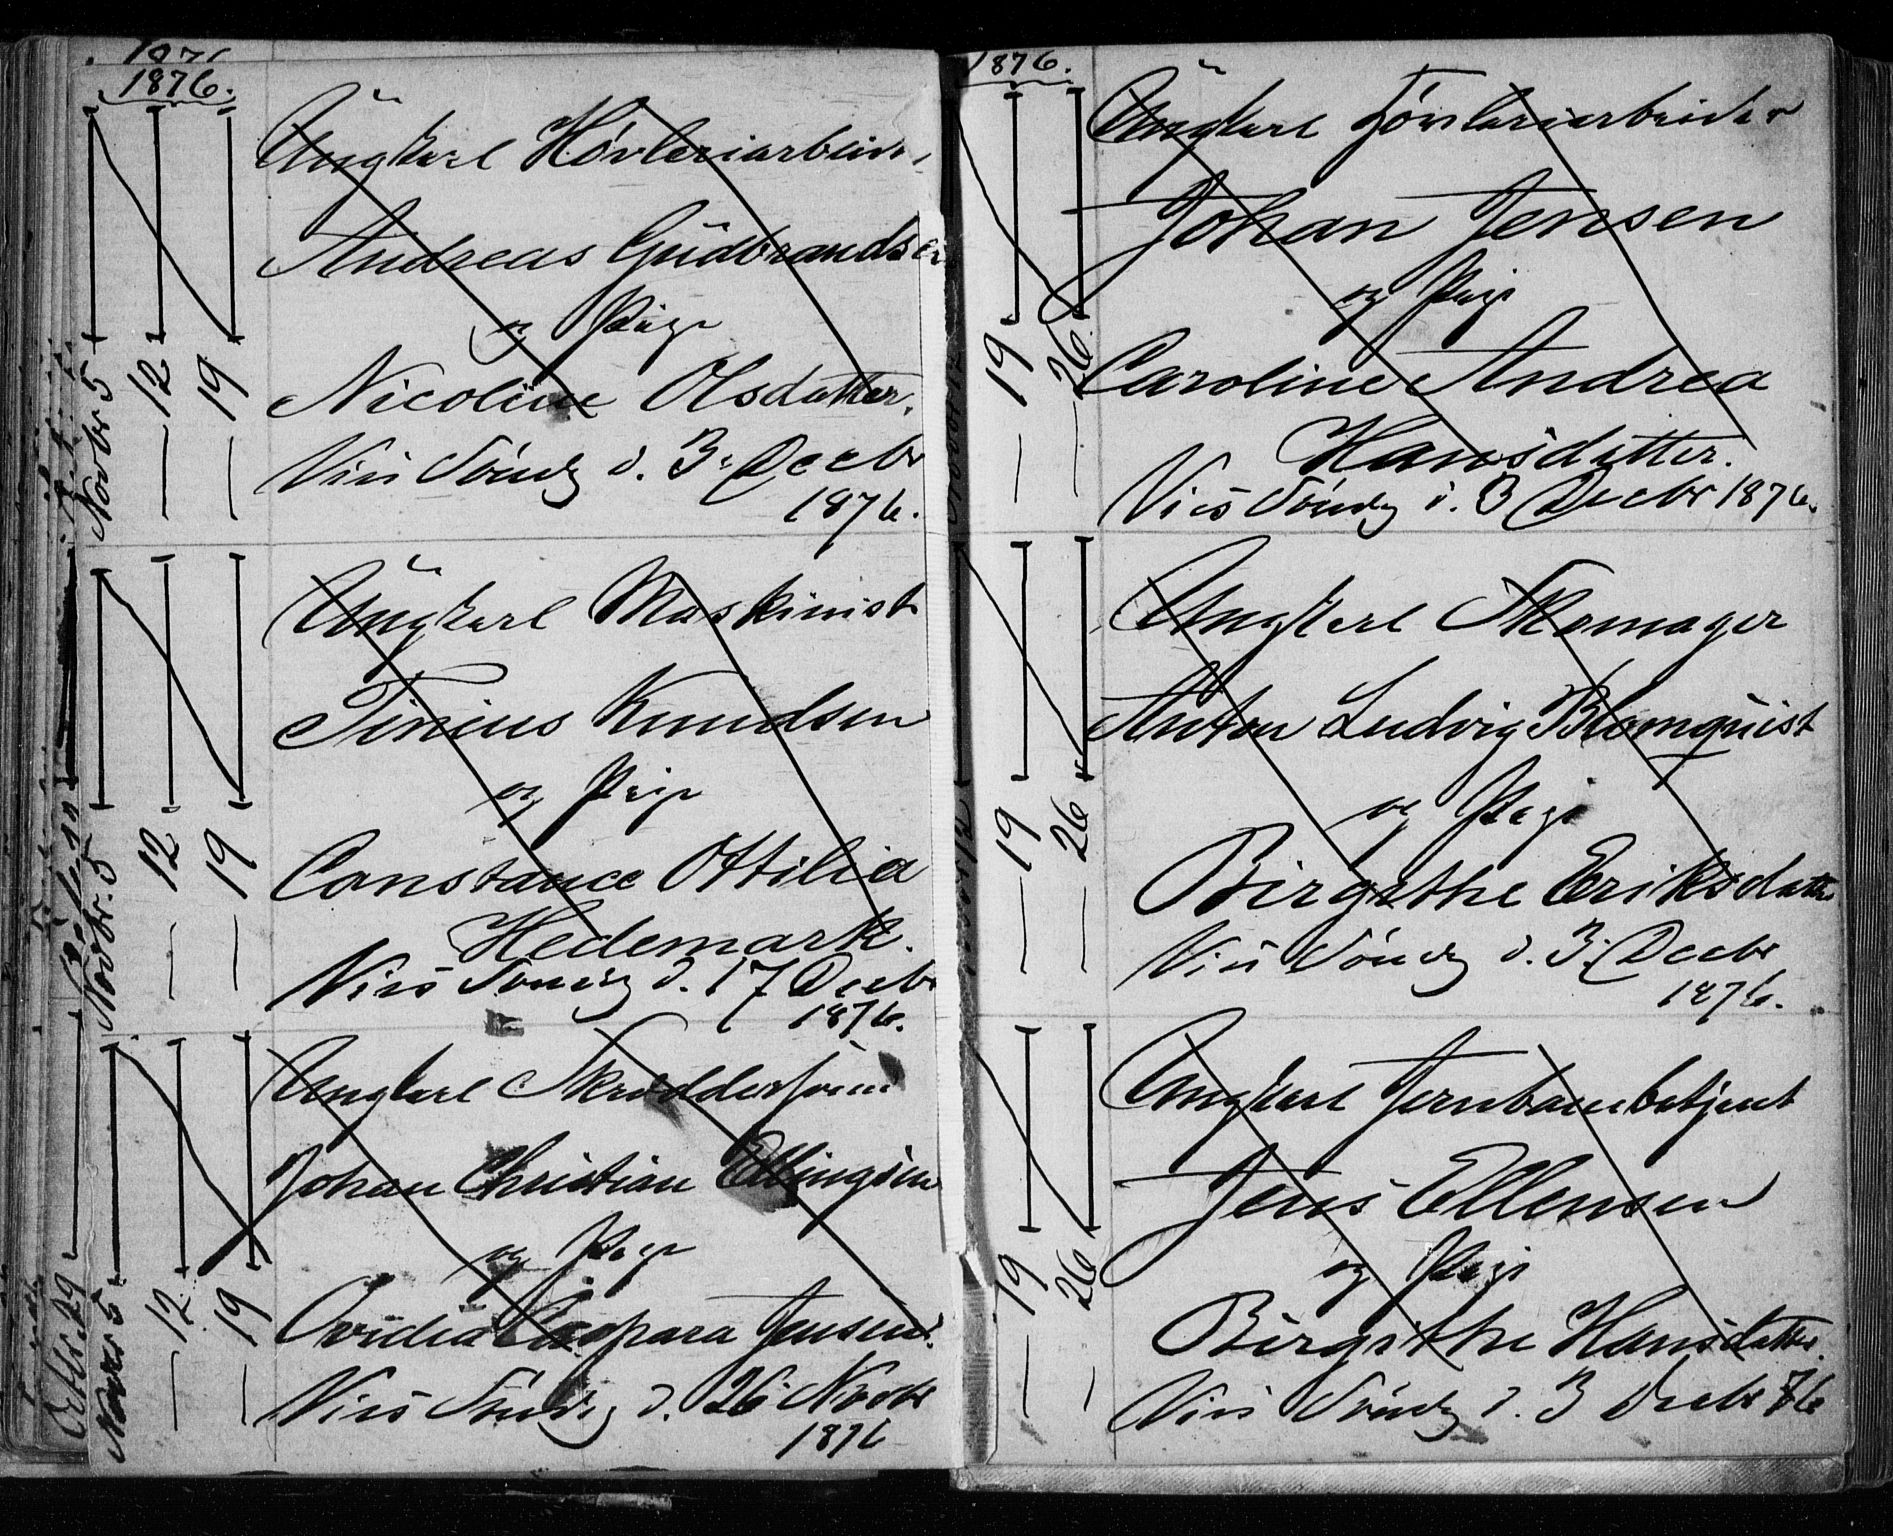 1876.
Ungkarl Høvleriarbeid
Andreas Gudbrandsen
og Pige
Nicoline Olsdatter.
Vies Søndg d. 3: Decbr
1876.
Novbr 5
— 12 —
— 19 —
Ungkarl Maskinist
Tinius Knudsen
og Pige
Constance Ottilia
Hedemark.
Vies Søndg d. 17 Decbr
1876.
Novbr. 5
12 —
19 —
Ungkarl Skreddersvend
Johan Christian Ellingsen
og Pige
Ovidia Caspara Jensen.
Vies Søndg d. 26 Novbr
1876
Octbr. 29
Novbr 5
— 12 —
19 —
1876.
Ungkarl Høvleriarbeider
Johan Jensen
og Pige
Caroline Andrea
Hansdatter.
Vies Søndg d. 3 Decbr 1876.
19 —
— 26 —
Ungkarl Skomager
Anton Ludvig Blomquist
og Pige
Birgithe Eriksdatter
Vies Søndg d. 3. Decbr
1876.
— 19 —
26 —
Ungkarl Jernbanebetjent
Jens Ellensen
og Pige
Birgithe Hansdatter.
Vies Søndg d. 3 Decbr 76
19 —
26 —